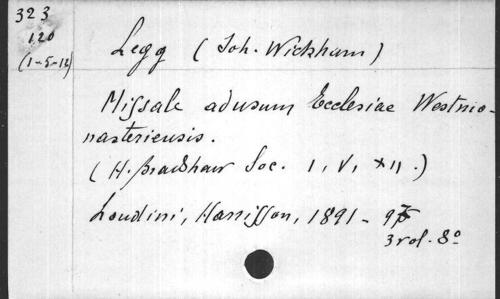 323
120
(1-5-12)
Legg (Joh. Wickham)
Missale ad usum Ecclesiae Westmo-
nasteriensis.
(H. Bradshaw Soc. I, V, XII.)
Londini, Harrisson, 1891-97
3 vol. 8º